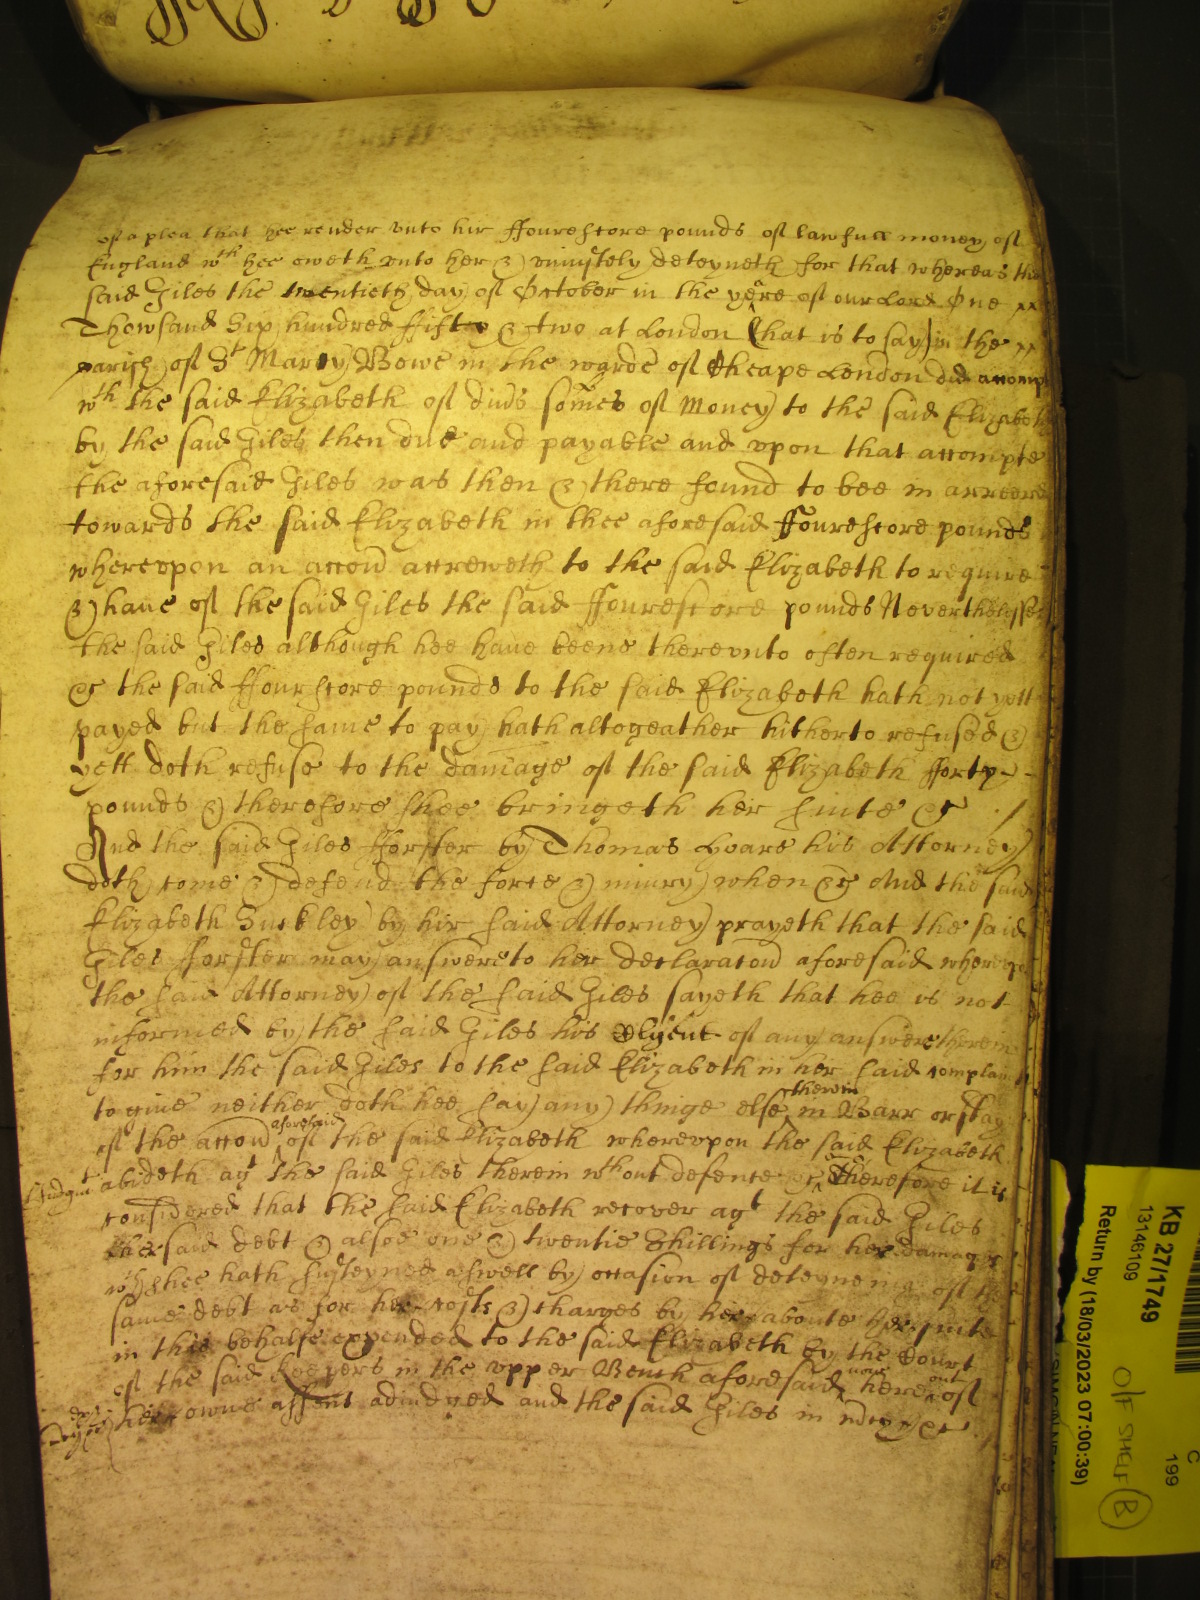 of a plea that hee render vnto her ffourescore pounds of lawfull money of
England wch hee oweth vnto her & uniustely deteyneth for that whereas the
said Giles the twentieth day of October in the yeare of our Lord One
Thowsand Six hundred ffifty & two at London (that is to say) in the
parish of St Mary Bowe in the warde of Cheape London did accompt
wth the said Elizabeth of divs somes of Money to the said Elizabeth
by the said Giles then due and payable and vpon that accompte
the aforesaid Giles was then & there found to bee in arreere
towards the said Elizabeth in thee aforesaid ffourescore pounds
wherevpon an accon accreweth to the said Elizabeth to require
& haue of the said Giles the said ffourescore pounds Neverthelesse
the said Giles although hee haue beene therevnto often required
&c the said ffourscore pounds to the said Elizabeth hath not yett
payed but the same to pay hath altogeather hitherto refused &
yett doth refuse to the damage of the said Elizabeth fforty
pounds & therefore shee bringeth her suite &c
And the said Giles fforster by Thomas Hoare his Attorney
doth come & defend the force & iniury when &c And the said
Elizabeth Suckley by hir said Attorney prayeth that the said
Giles fforster may answere to her declaracon aforesaid wherevpon
the said Attorney of the said Giles sayeth that hee is not
informed by the said Giles his Clyent of any answere therein
for him the said Giles to the said Elizabeth in her said complaint
to giue neither doth hee say any thinge else therein in Barr or stay
of the accon aforesaid of the said Elizabeth wherevpon the said Elizabeth
Iudgmt abideth agt the said Giles therein wthout defence &c Therefore it is
considered that the said Elizabeth recover agt the said Giles
her said debt & alsoe one & twentie Shillings for her damages
wch shee hath susteyned aswell by occasion of deteyneing of the
same debt as for her costs & charges by her aboute her suite
in this behalfe expended to the said Elizabeth by the Court
of the said Keepers in the vpper Bench aforesaid now here out of
her owne assent adiudged and the said Giles in mercy &c
KB 27/1749
13146109
Return by (18/03/2023 07:00:39)
Off SHELF (B)
C
199